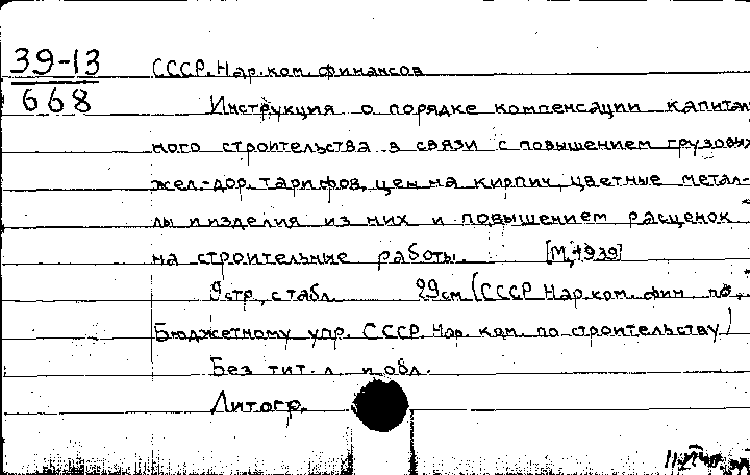 39-13
668
СССР. Нар. ком. финансов
Инструкция о порядке компенсации капиталь
ного строительства в связи с повышением грузовых
жел.-дор. тарифов, цен на кирпич, цветные метал-
лы и изделия из них и повышением расценок
на строительные работы. [М, 1939]
9 стр. с табл. 29 см (СССР Нар. ком. фин по
Бюджетному упр. СССР. Нар. ком. по строительству)
Без тит. л. и обл.
Литогр.